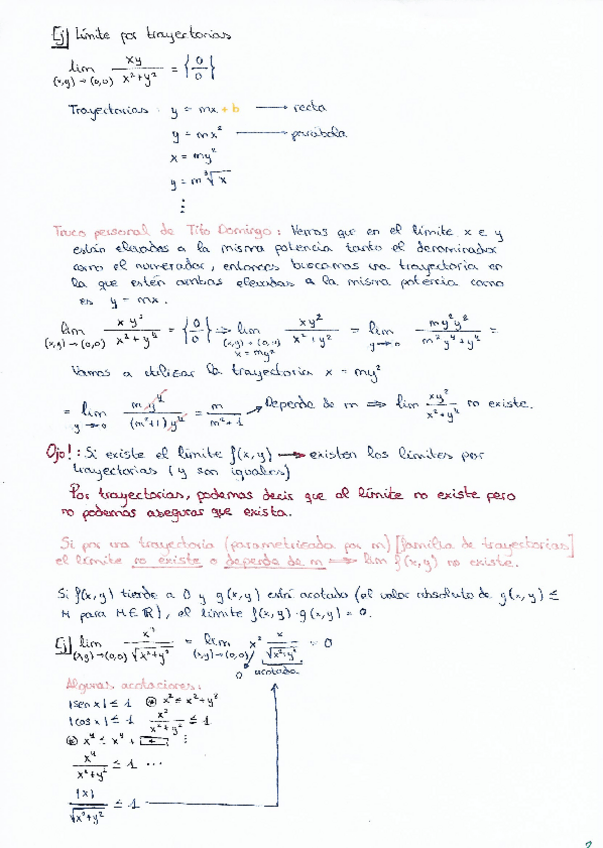 Ej Límite por trayectorias
lim (x,y)→(0,0) xy / x²+y² = {0/0}
Trayectorias: y = mx + b → recta
y = mx² → parábola
x = my²
y = m ³√x
⋮
Truco personal de Tito Domingo: Vemos que en el límite x e y
están elevadas a la misma potencia tanto el denominador
como el numerador, entonces buscamos una trayectoria en
la que estén ambas elevadas a la misma potencia como
es y = mx.
lim (x,y)→(0,0) xy² / x²+y⁴ = {0/0} ⇒ lim (x,y)→(0,0) x=my² xy² / x²+y² = lim y→0 my²y² / m²y⁴+y⁴ =
Vamos a utilizar la trayectoria x = my²
= lim y→0 m y⁴ / (m²+1) y⁴ = m / m²+1 → Depende de m ⇒ lim xy² / x²+y⁴ no existe.
Ojo!: Si existe el límite f(x,y) → existen los límites por
trayectorias (y son iguales)
Por trayectorias, podemos decir que el límite no existe pero
no podemos asegurar que exista.
Si por una trayectoria (parametrizada por m) [familia de trayectorias]
el límite no existe o depende de m ⇒ lim f(x,y) no existe.
Si f(x,y) tiende a 0 y g(x,y) está acotado (el valor absoluto de g(x,y) ≤
M para M∈ℝ), el límite f(x,y)·g(x,y) = 0.
Ej lim (x,y)→(0,0) x³ / √x²+y² = lim (x,y)→(0,0) x² x / √x²+y² = 0
0 acotada
Algunas acotaciones:
|sen x| ≤ 1 x² ≤ x²+y²
|cos x| ≤ 1 x² / x²+y² ≤ 1
x⁴ ≤ x⁴ + + ⋮
x⁴ / x⁴+y² ≤ 1 ...
|x| / √x²+y² ≤ 1
2